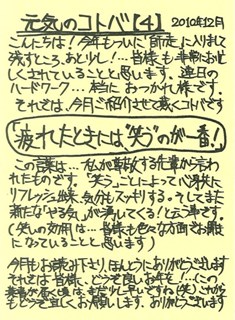 元気のコトバ【4】 2010年12月
こんにちは！今年もついに「師走」に入りまして
残すところ、あと少し！…皆様も非常にお忙
しくされていることと思います。連日の
ハードワーク…本当におつかれ様です。
それでは、今月ご紹介させて頂くコトバです
「疲れたときには"笑う"のが一番！」
この言葉は…私が尊敬する先輩から言わ
れたものです。"笑う"ことによって心身共に
リフレッシュ出来、気分もスッキリする。そしてまた
新たな"やる気"が湧いてくる！と云う事です。
（笑いの効用は…皆様も色々な方面でお聴き
になっていることと思います）
今月もお読み下さり、ほんとうにありがとうございます
それでは皆様、どうぞ良いお年を！…（この
には、まだ少し早いですね（笑））これから
もどうぞ宜しくお願いします。ありがとうございます